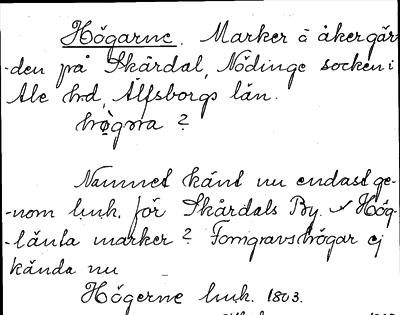 Högarne. Marker å åkergär-
-den på Skårdal, Nödinge socken i
Ale hd, Älfsborgs län.
högra ?
Namnet känt nu endast ge-
-nom huk. för Skårdals By. Hög-
-länta marker ? Forngravshögar ej
kända nu
Högerne huk. 1803.